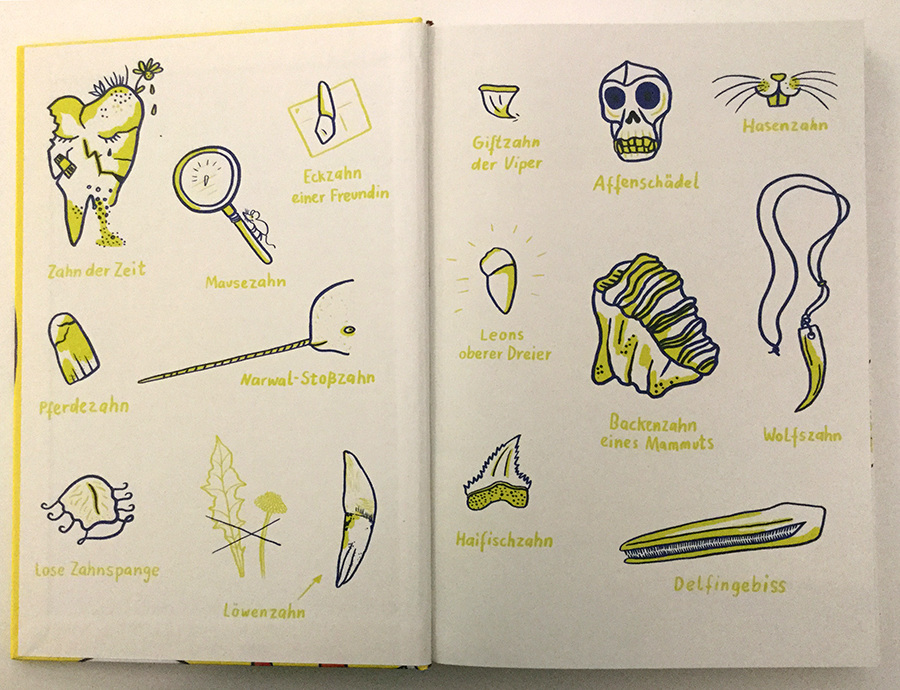 Zahn der Zeit
Mausezahn
Eckzahn
einer Freundin
Pferdezahn
Narwal-Stoßzahn
Lose Zahnspange
Löwenzahn
Giftzahn
der Viper
Affenschädel
Hasenzahn
Leons
oberer Dreier
Backenzahn
eines Mammuts
Wolfszahn
Haifischzahn
Delfingebiss